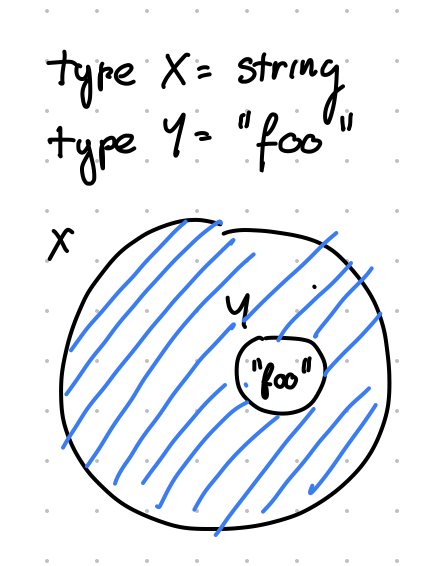 type X = string
type Y = "foo"
X
Y
"foo"